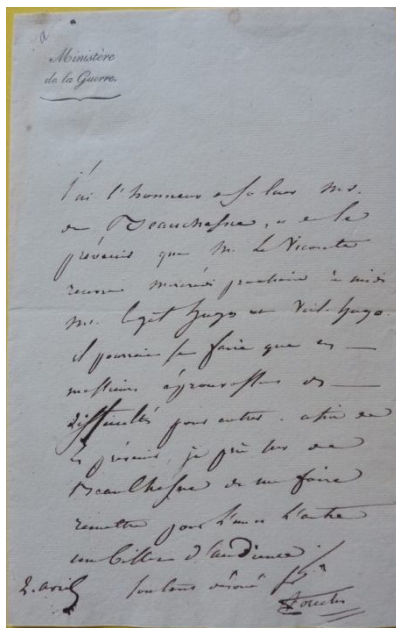 Ministère
de la Guerre.
J'ai l'honneur de saluer Mr.
de Beauchesne, et de le
prévenir que M. Le Vicomte
recevra mercredi prochain à midi
Mr. Hugo Hugo
il pourrait se faire que ces
messieurs éprouvassent des
difficultés pour entrer. afin de
les prévenir, je prie Mr de
Beauchesne de me faire
remettre pour l'un et l'autre
un billet d'audience.
2. avril son tout dévoué
Foucher